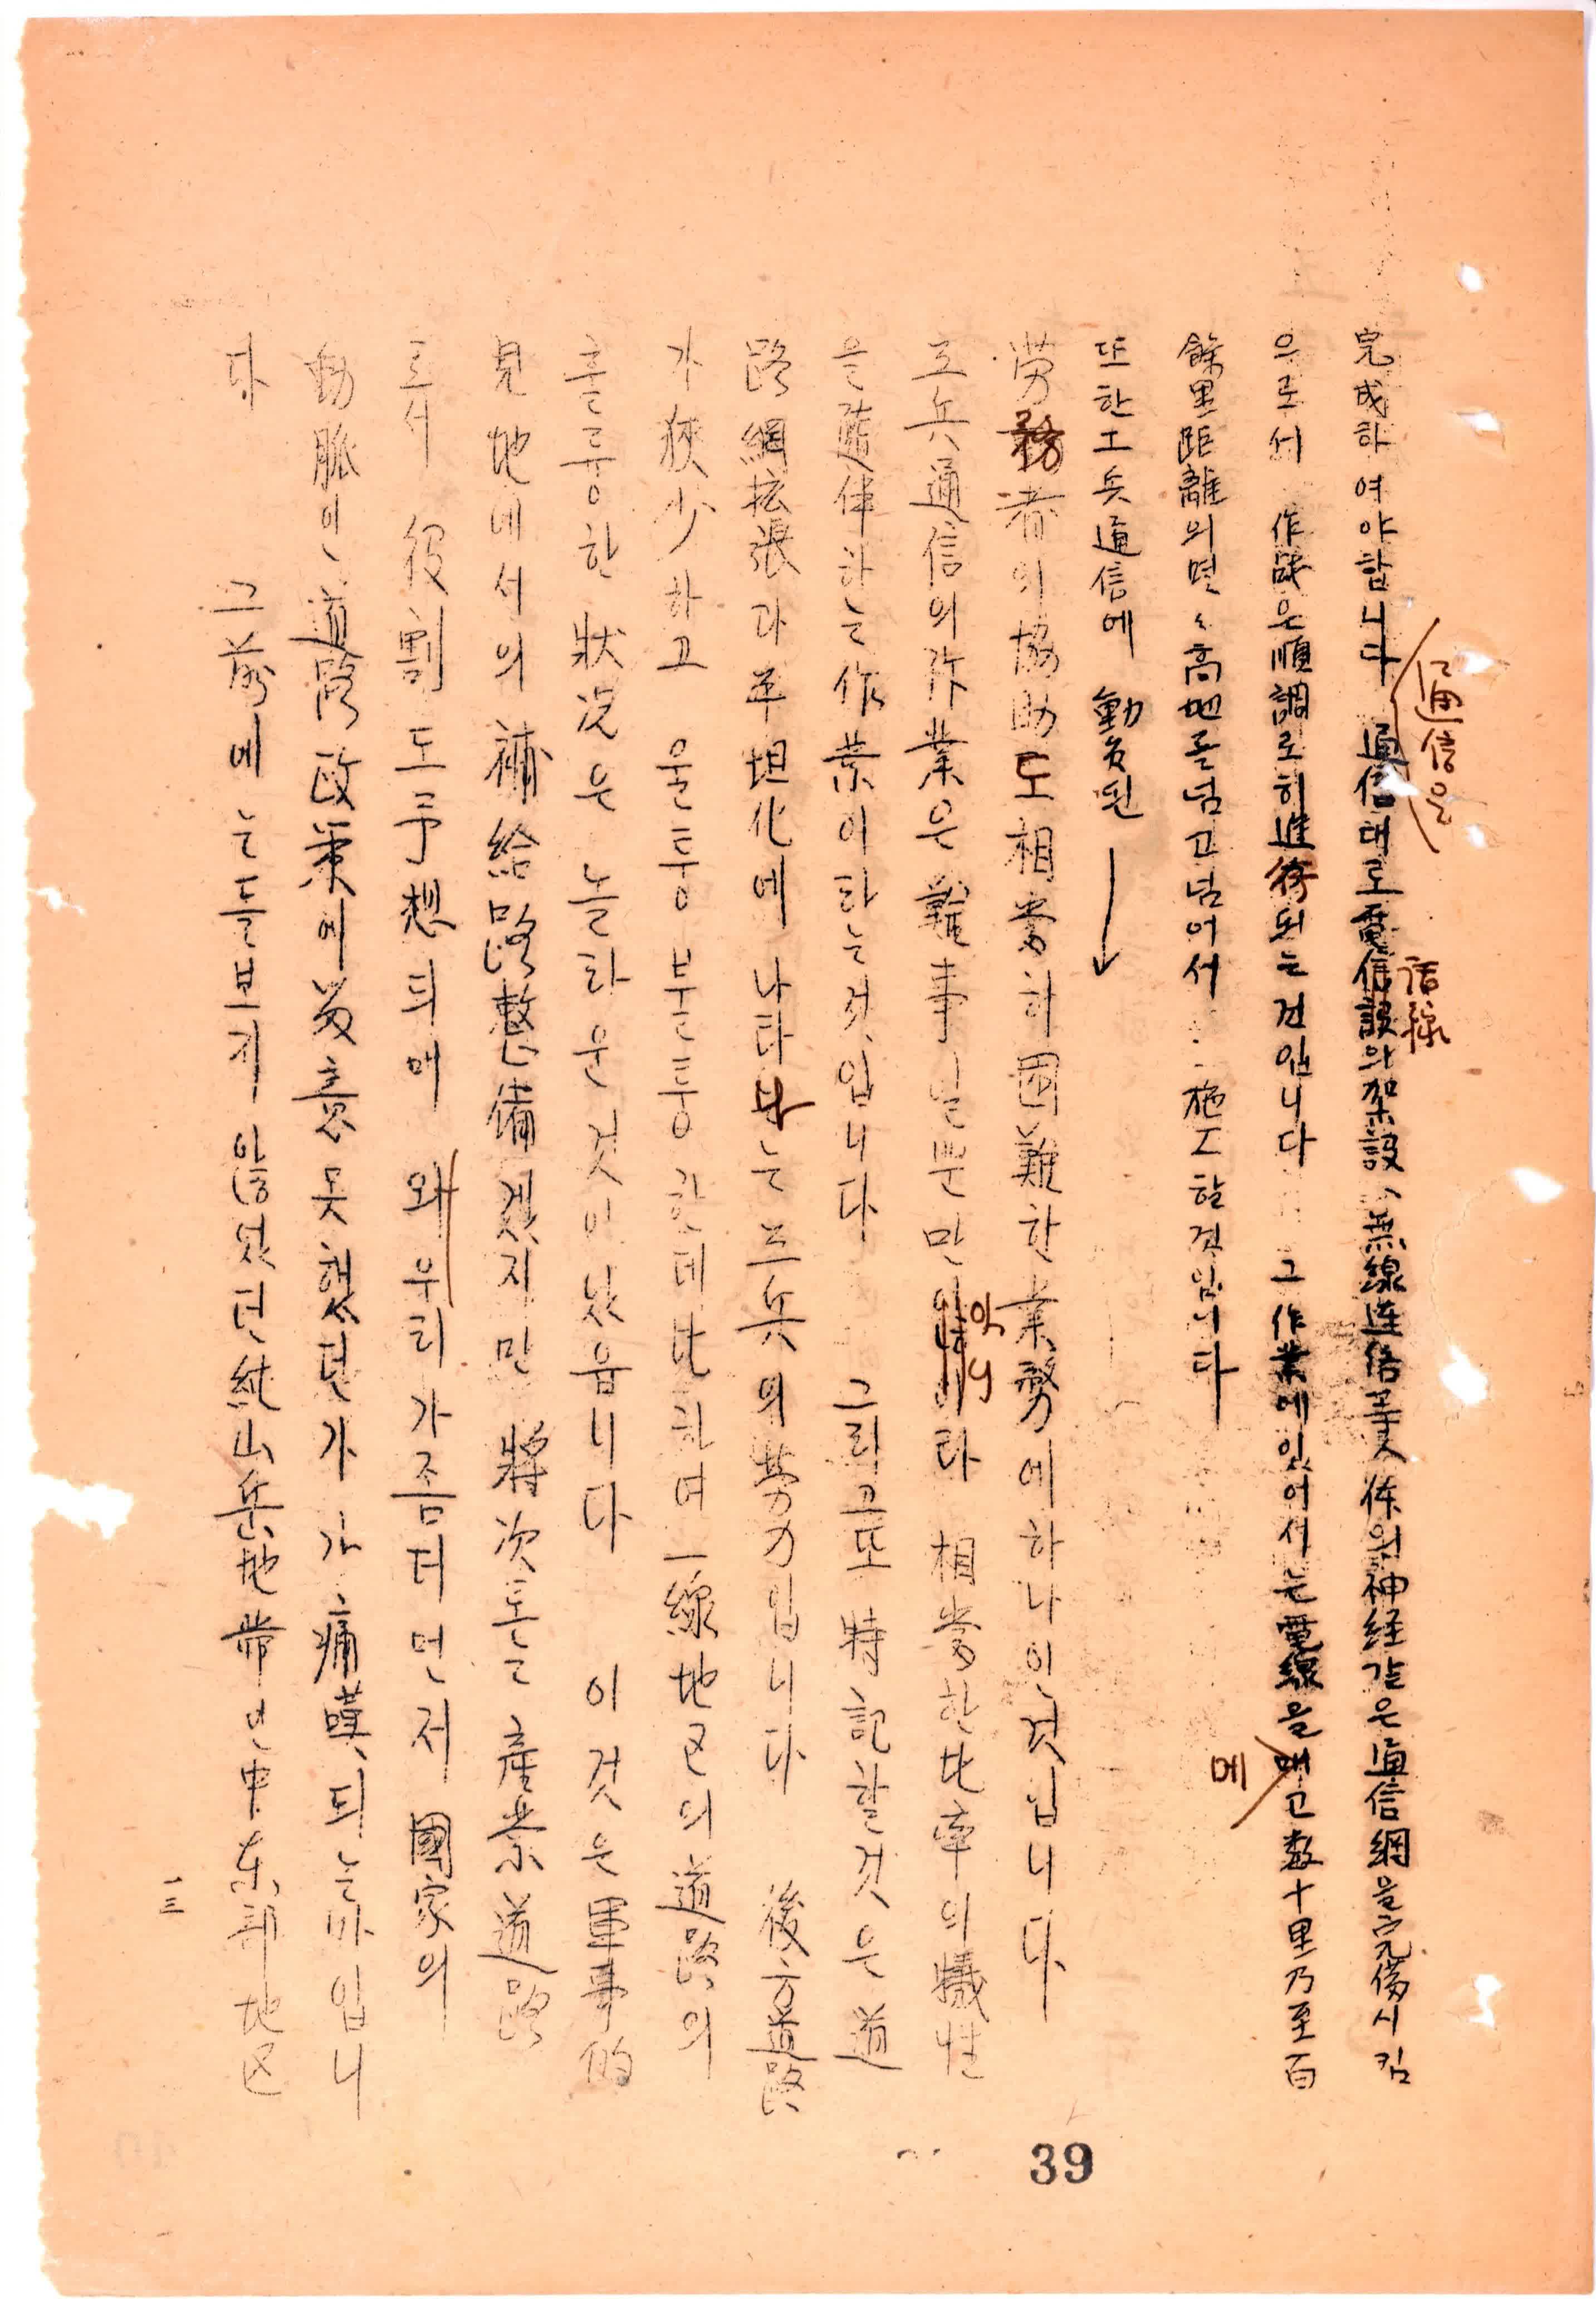 完成하여야합니다 通信대로電信설와架設、無線連信等人体의神経같은通信網을完備시킴
通信을
話線
으로서 作戰은順調로히進行되는것입니다 그作業에있어서는電線을매고数十里乃至百
메
餘里距離의먼々高地를넘고넘어서 施工할것입니다
또한工兵通信에 動員된
勞務者의協助도相當히困難한業務에하나인것입니다
工兵通信의作業은難事일뿐만 아니라 相當한比率의犧牲
을隨伴하는作業이라는것입니다 그리고또特記할것은道
路網拡張과平坦化에나타나는工兵의勞力입니다 後方道路
가狹少하고 울퉁부퉁한데比하며一線地区의道路의
훌륭한狀況은 놀라운것이었읍니다 이것은軍事的
見地에서의補給路整備겠지만 將次로는産業道路
로서 役割도予想되며 왜우리가좀더먼저國家의
動脈인道路政策에留意못했던가가痛嘆되는바입니
다 그前에는들보지않았던純山岳地帶인中東部地区
一三
39